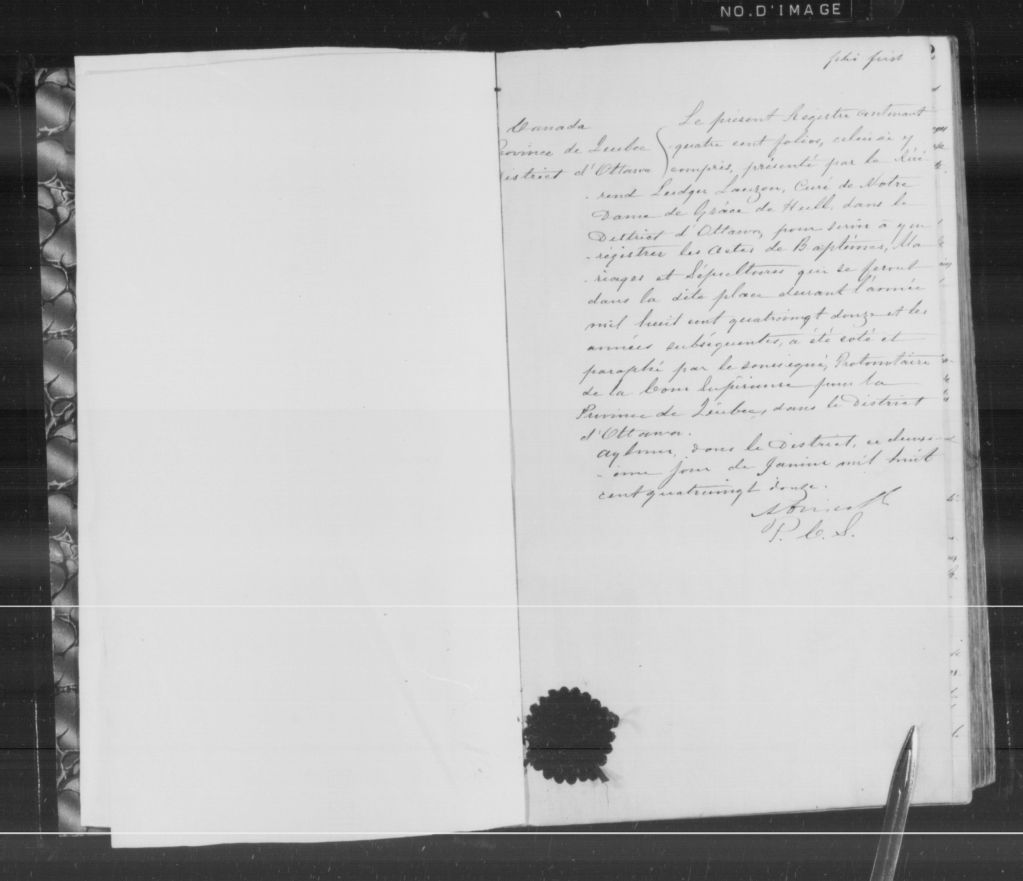 NO. D'IMAGE
folio first
Canada
Province de Québec
District d'Ottawa
Le présent Registre contenant
quatre cent folios, celui-ci y
compris, présenté par le Révé
-rend Ludger Lauzon, Curé de Notre
Dame de Grâce de Hull, dans le
District d'Ottawa, pour servir à y en
-régistrer les Actes de Baptêmes, Ma
-riages et Sépultures qui se feront
dans la dite place durant l'année
mil huit cent quatrevingt douze et les
années subséquentes, a été coté et
paraphé par le soussigné, Protonotaire
de la Cour Supérieure pour la
Province de Québec, dans le District
d'Ottawa.
Aylmer, dans le District, ce deuxi
-ème jour de Janvier mil huit
cent quatrevingt douze.
P. C. S.